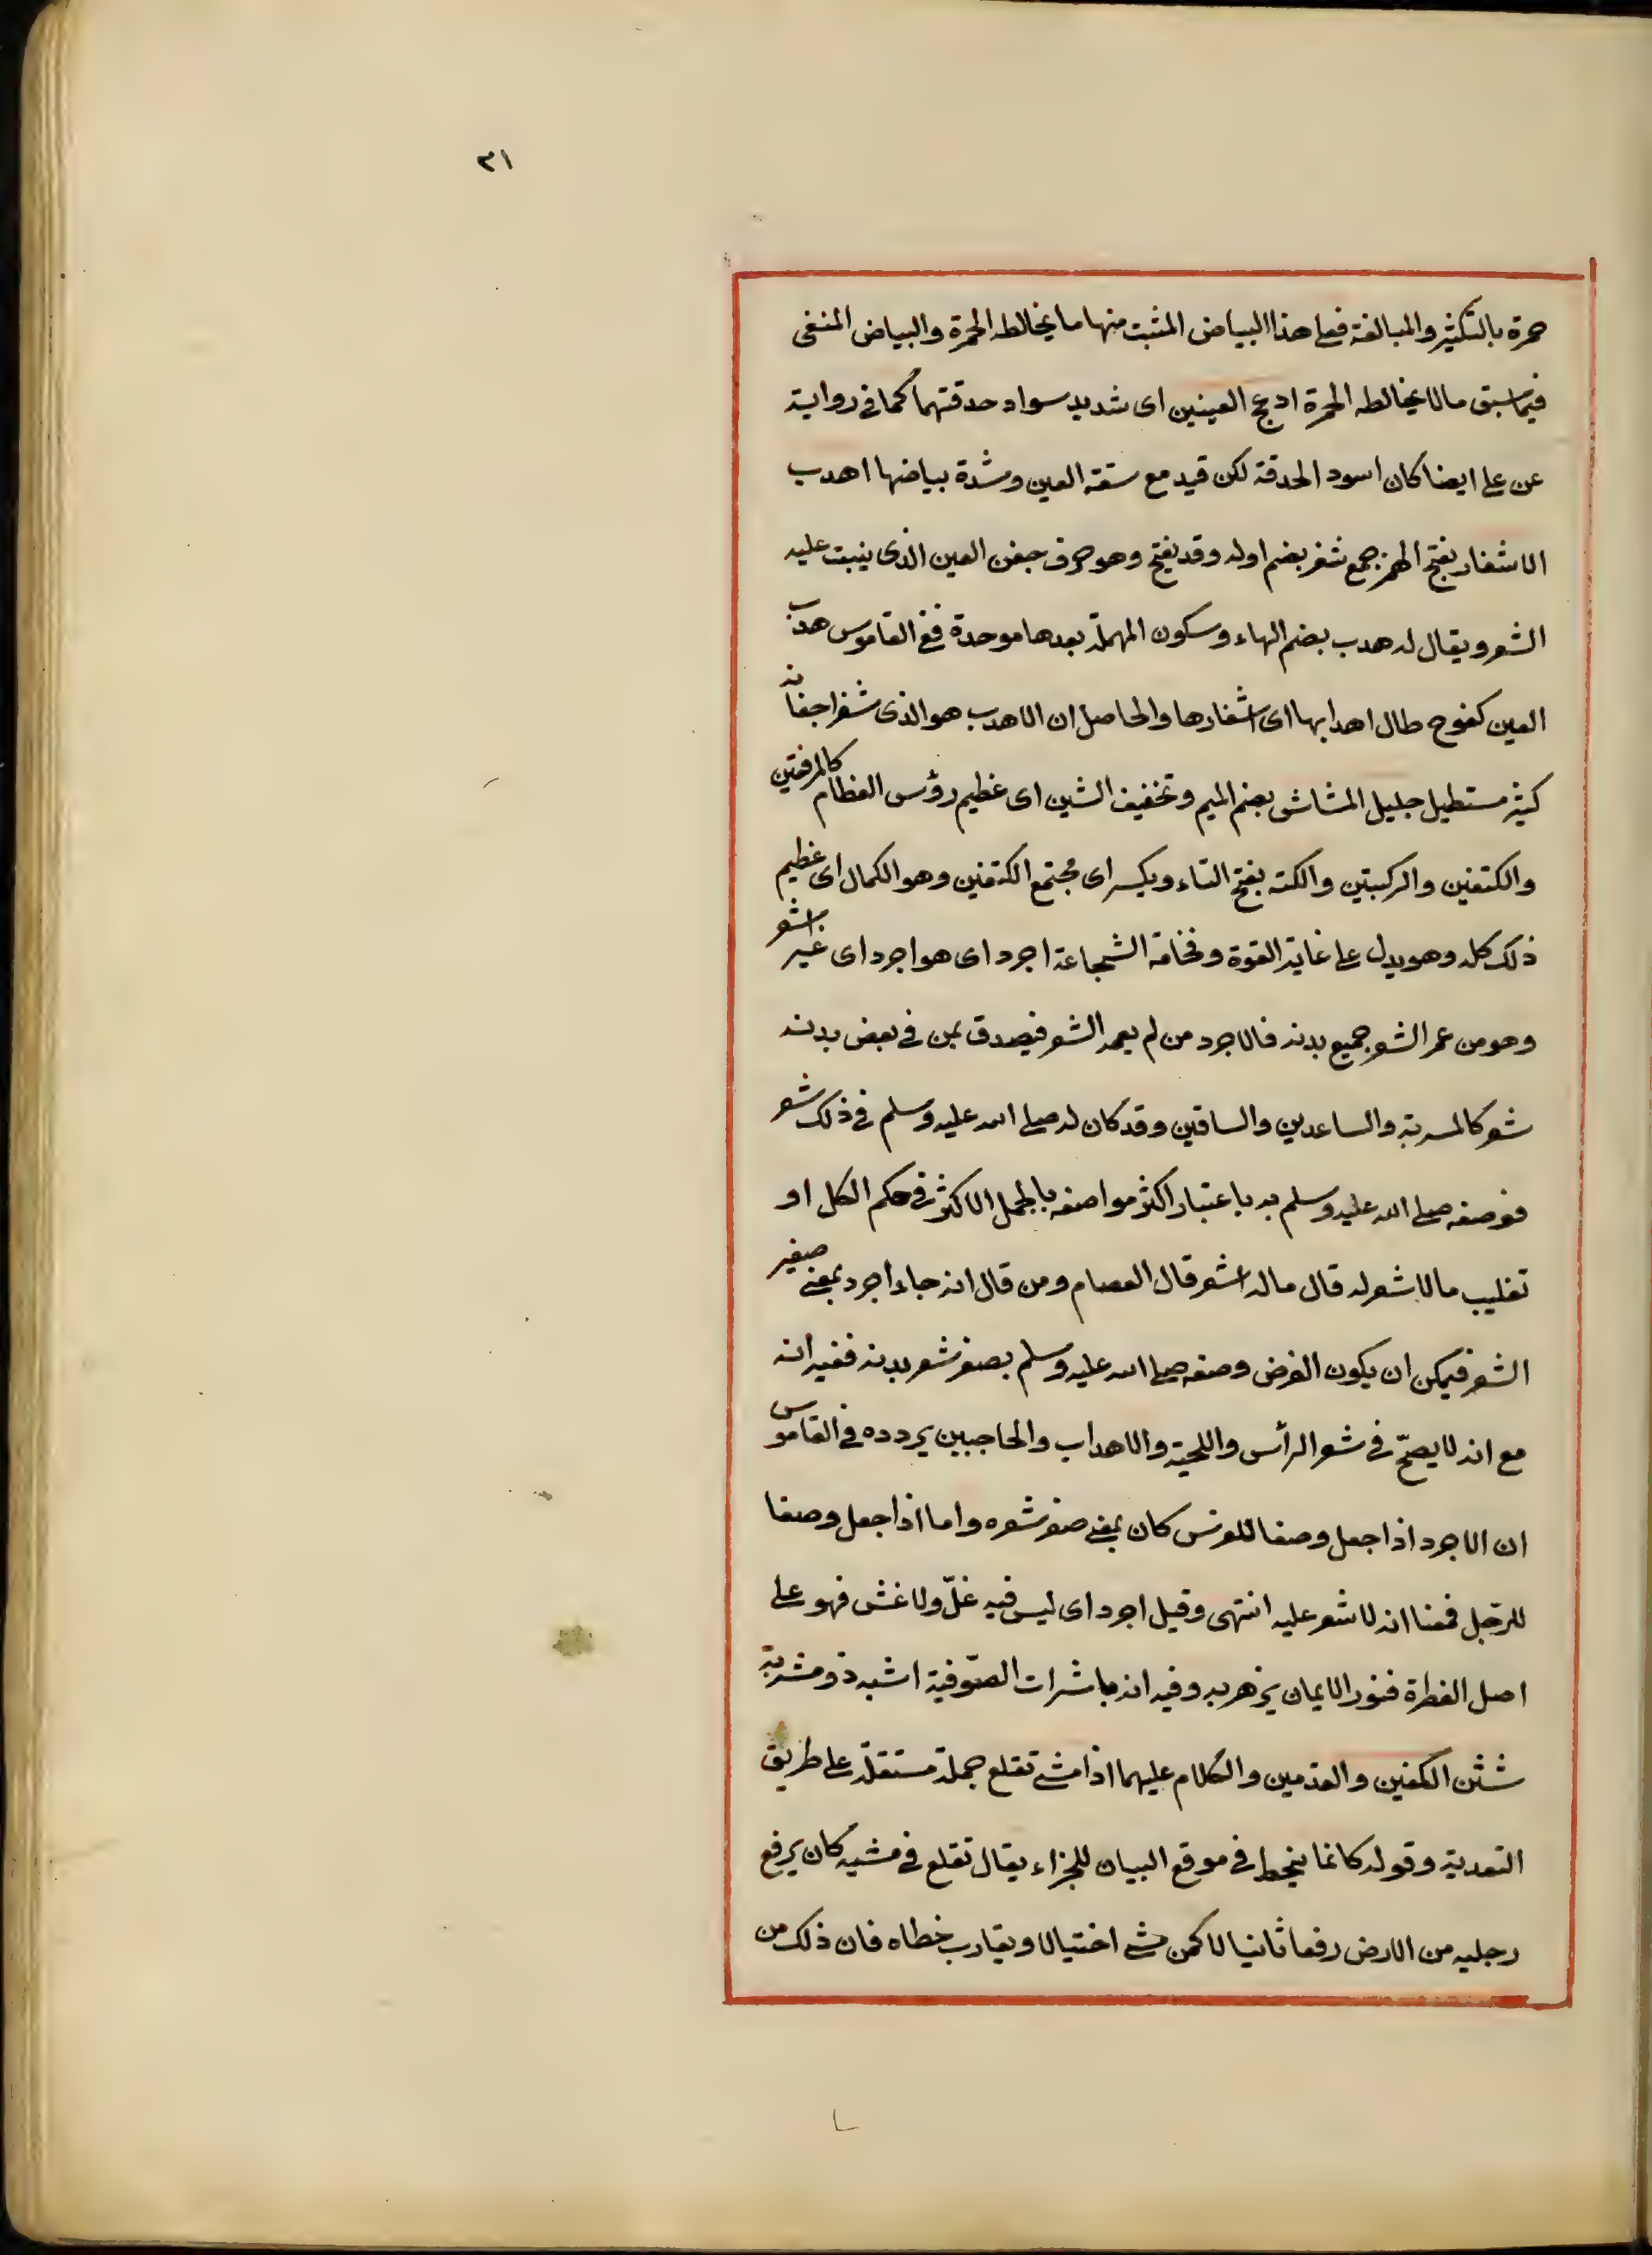 ٣١
حمرة بالتكثير والمبالغة فعلى هذا البياض المثبت منها ما يخالطه الحمرة والبياض المنفى
فيما سبق مالا يخالطه الحمرة ادعج العينين اى شديد سواد حدقتهما كما فى رواية
عن على ايضا كان اسود الحدقة لكن قيد مع سقة العين وشدة بياضها اهدب
الاشفار بفتح الهمز جمع شفر بضم اوله وقد يفتح وهو حرف جفن العين الذى ينبت عليه
الشعر ويقال له هدب بضم الهاء وسكون المهملة بعدها موحدة ففى القاموس هدب
العين كفوح طال اهدابها اى اشفارها والحاصل ان الاهدب هو الذى شفر اجفانه
كثير مستطيل جليل المشاش بضم الميم وتخفيف الشين اى عظيم رؤس العظام كالمرفقين
والكتفين والركبتين والكتد بفتح التاء ويكسر اى مجتمع الكتفين وهو الكمال اى عظيم
ذلك كله وهو يدل على غاية القوة وفخامة الشجاعة اجرد اى هو اجرد اى غير اشعر
وهو من عمر الشعر جميع بدنه فالاجرد من لم يعمه الشعر فيصدق بمن فى بعض بدنه
شعر كالمسربة والساعدين والساقين وقد كان له صلى الله عليه وسلم فى ذلك شعر
فوصفه صلى الله عليه وسلم به باعتبار اكثر مواضعه بالجمل الاكثر فى حكم الكل او
تغليب مالا شعر له قال ماله اشعر قال العصام ومن قال انه جاء اجرد بمعنى صغير
الشعر فيمكن ان يكون الغرض وصفه صلى الله عليه وسلم بصغر شعر بدنه ففيه انه
مع انه لا يصحّ فى شعر الرأس واللحية والاهداب والحاجبين يرد ده فى القاموس
ان الاجرد اذا جعل وصفا للفرس كان بمعنى صغر شعره واما اذا جعل وصفا
للرّجل فمعنا انه لا شعر عليه انتهى وقيل اجرد اى ليس فيه غلّ ولا غش فهو على
اصل الفطرة فنور الايمان يزهر به وفيه انه باشرات الصّوفية اشبه ذو مشربة
شثن الكفين والقدمين والكلام عليهما اذا مشى تقلع جملة مستقلّة على طريق
التعدية وقوله كانما ينحط فى موقع البيان للجزاء يقال تقلع فى مشيه كان يرفع
رجليه من الارض رفعا ثانيا لا كمن مشى اختيالا ويقارب خطاه فان ذلك من